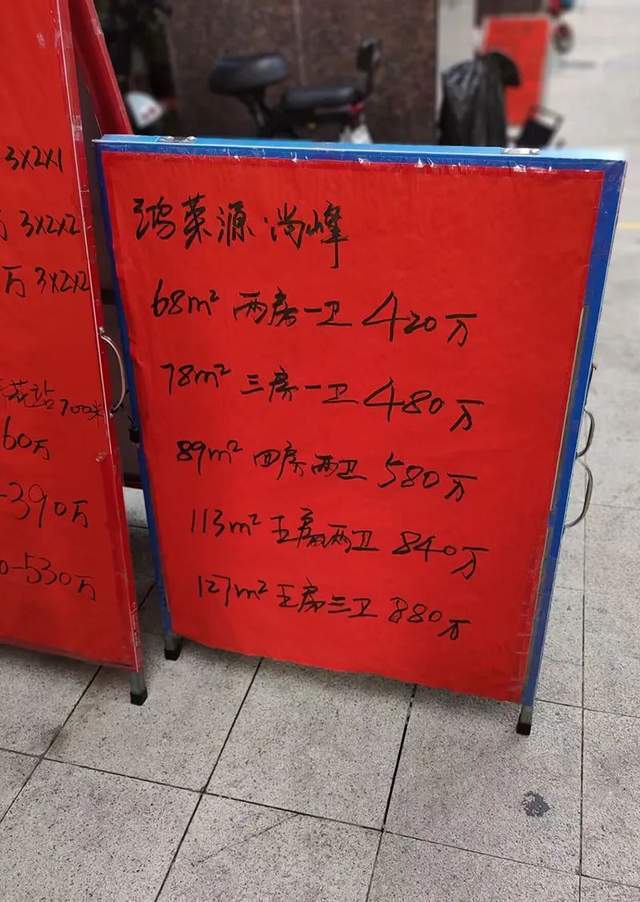 3X2X1
万 3X2X2
万 3X2X2
花站700米
60万
-390万
0-530万
鸿荣源·尚峰
68m² 两房一卫 420万
78m² 三房一卫 480万
89m² 四房两卫 580万
113m² 五房两卫 840万
127m² 五房三卫 880万